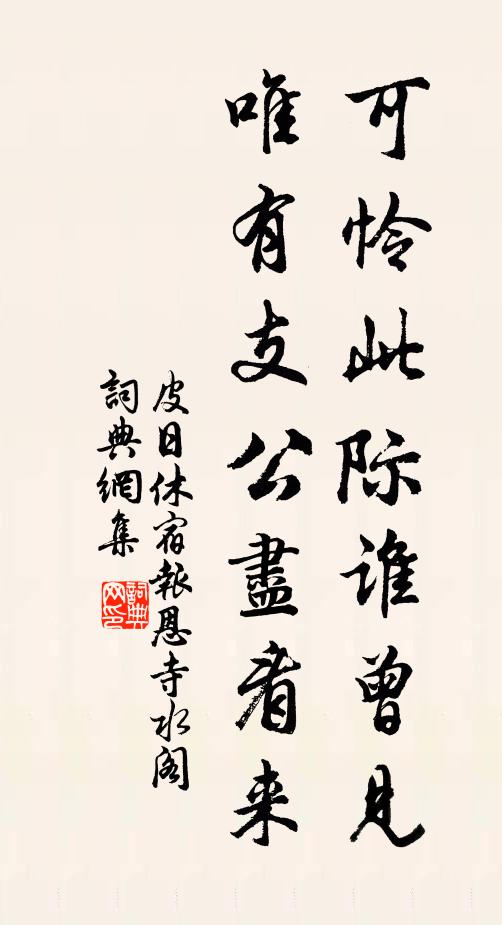 可怜此际谁曾見
唯有支公盡看来
皮日休宿報恩寺水阁
詞典網集
詞典网印